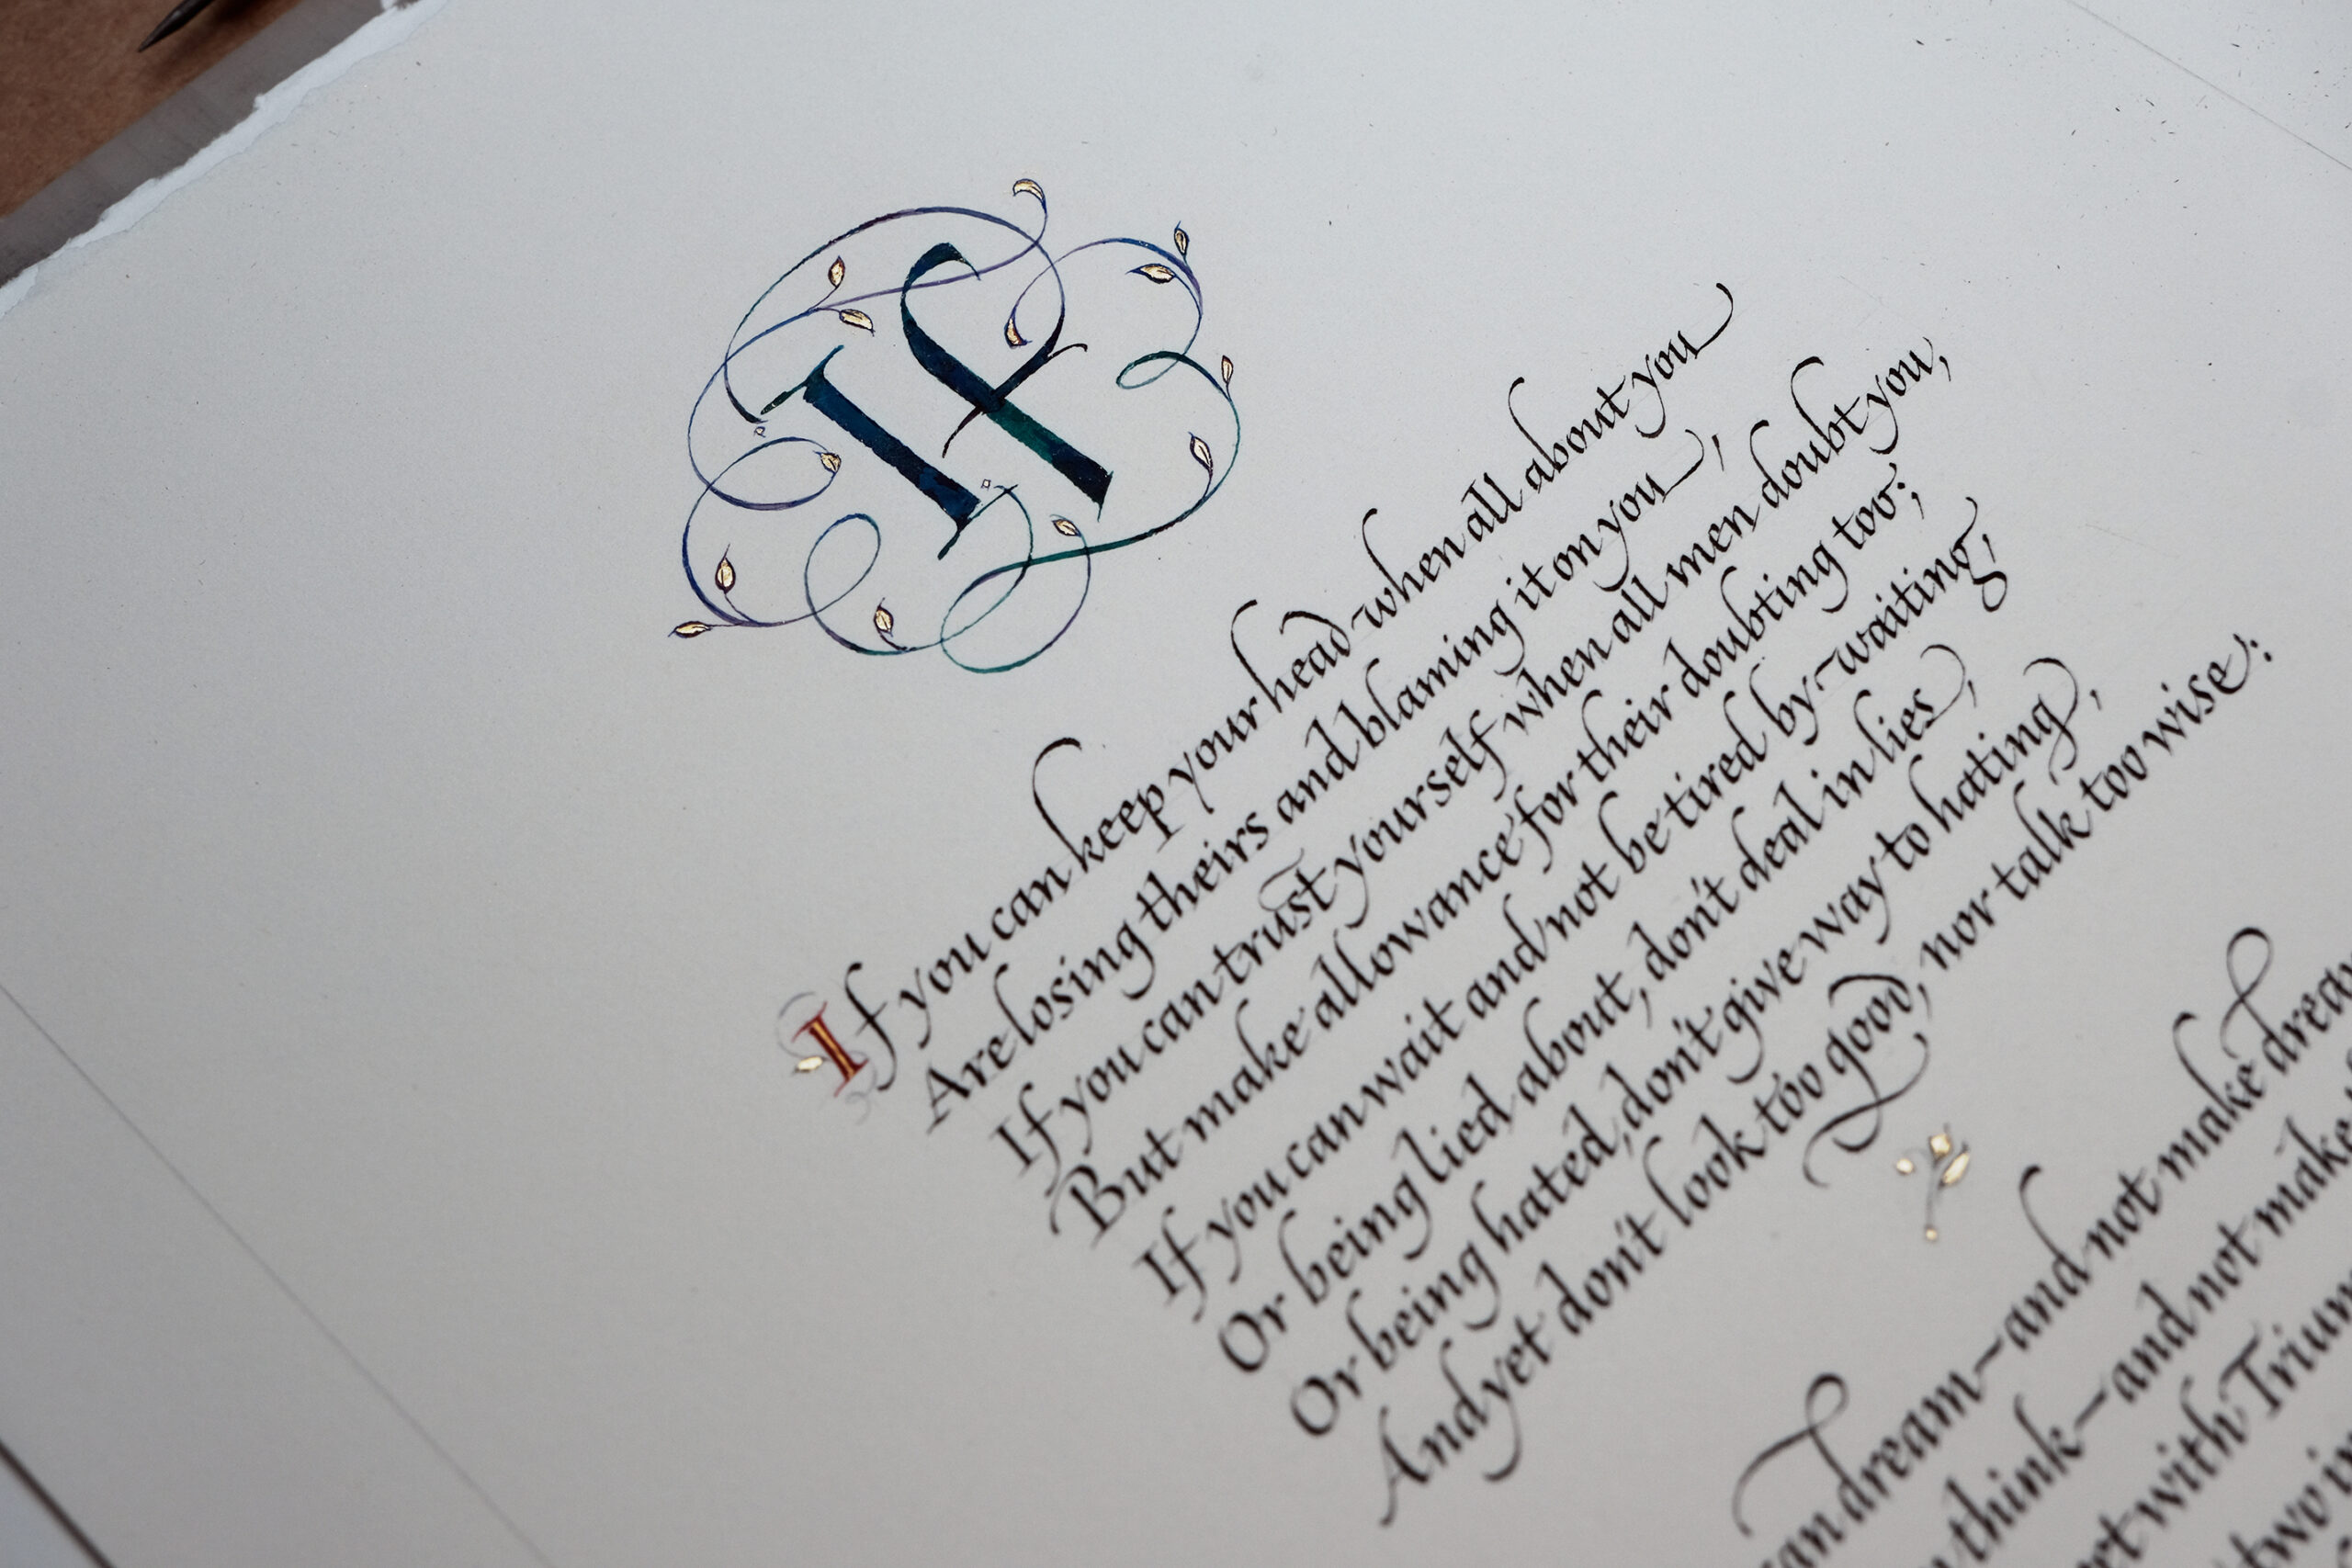 If
If you can keep your head when all about you
Are losing theirs and blaming it on you,
If you can trust yourself when all men doubt you,
But make allowance for their doubting too;
If you can wait and not be tired by waiting,
Or being lied about, don't deal in lies,
Or being hated, don't give way to hating,
And yet don't look too good, nor talk too wise:
dream—and not make
think—and not make
with
two